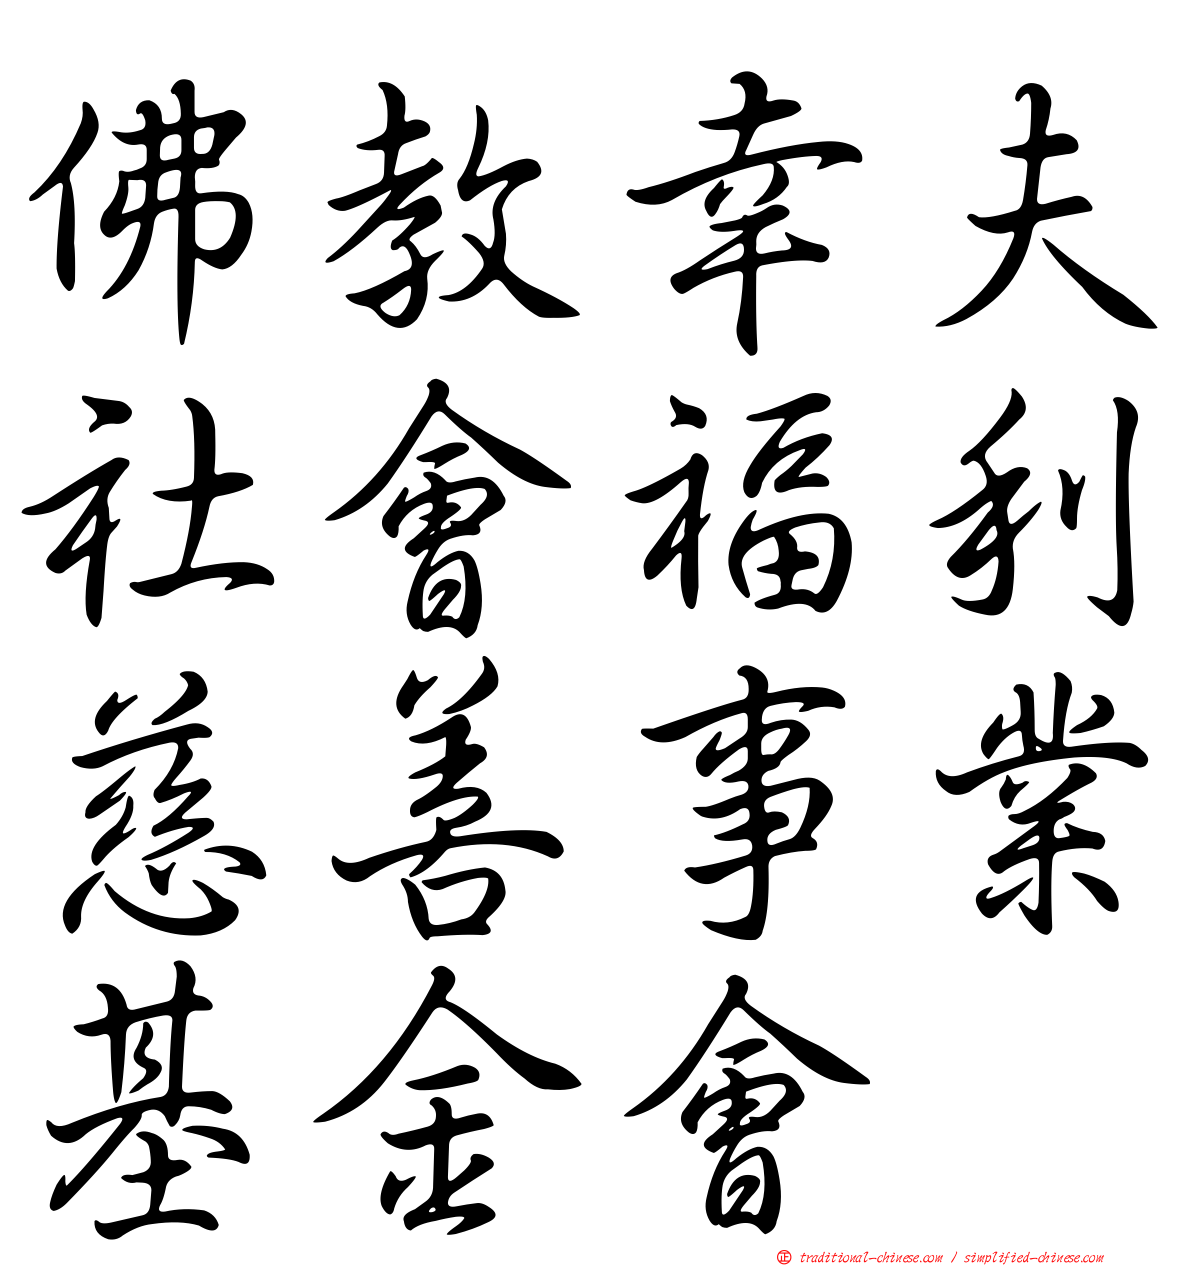 佛教幸夫
社會福利
慈善事業
基金會
㊣ traditional-chinese.com / simplified-chinese.com